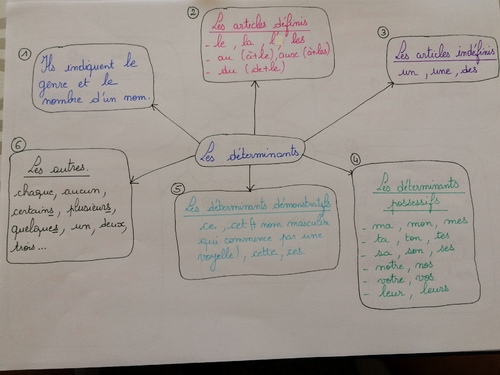 ①
Ils indiquent le
genre et le
nombre d'un nom.
②
Les articles définis
- le, la, l', les
- au (à+le), aux (à+les)
- du (de+le)
③
Les articles indéfinis
un, une, des
Les déterminants
④
Les déterminants
possessifs
- ma, mon, mes
- ta, ton, tes
- sa, son, ses
- notre, nos
- votre, vos
- leur, leurs
⑤
Les déterminants démonstratifs
ce, cet (+ nom masculin
qui commence par une
voyelle), cette, ces
⑥
Les autres.
chaque, aucun,
certains, plusieurs,
quelques, un, deux,
trois...